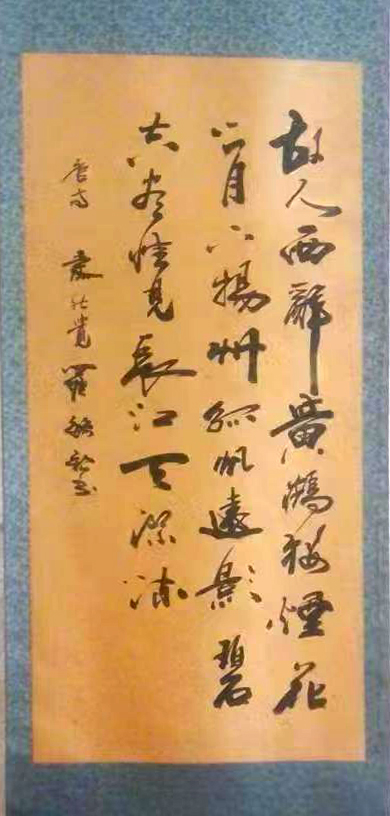 故人西辭黃鶴樓煙花
三月下揚州孤帆遠影碧
空盡惟見長江天際流
唐诗 羅